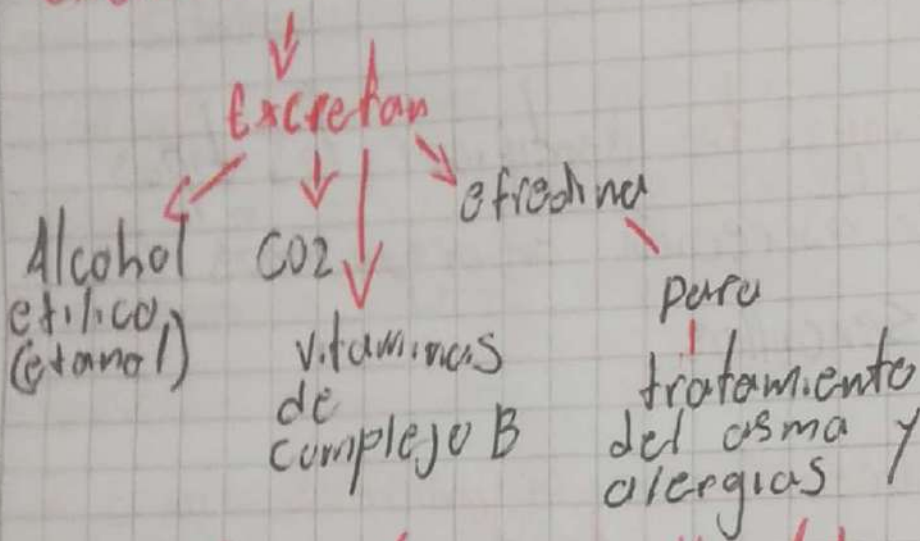 Excretan
Alcohol
etilico,
(etanol)
CO2
vitaminas
de
complejo B
efredina
para
tratamiento
del asma y
alergias